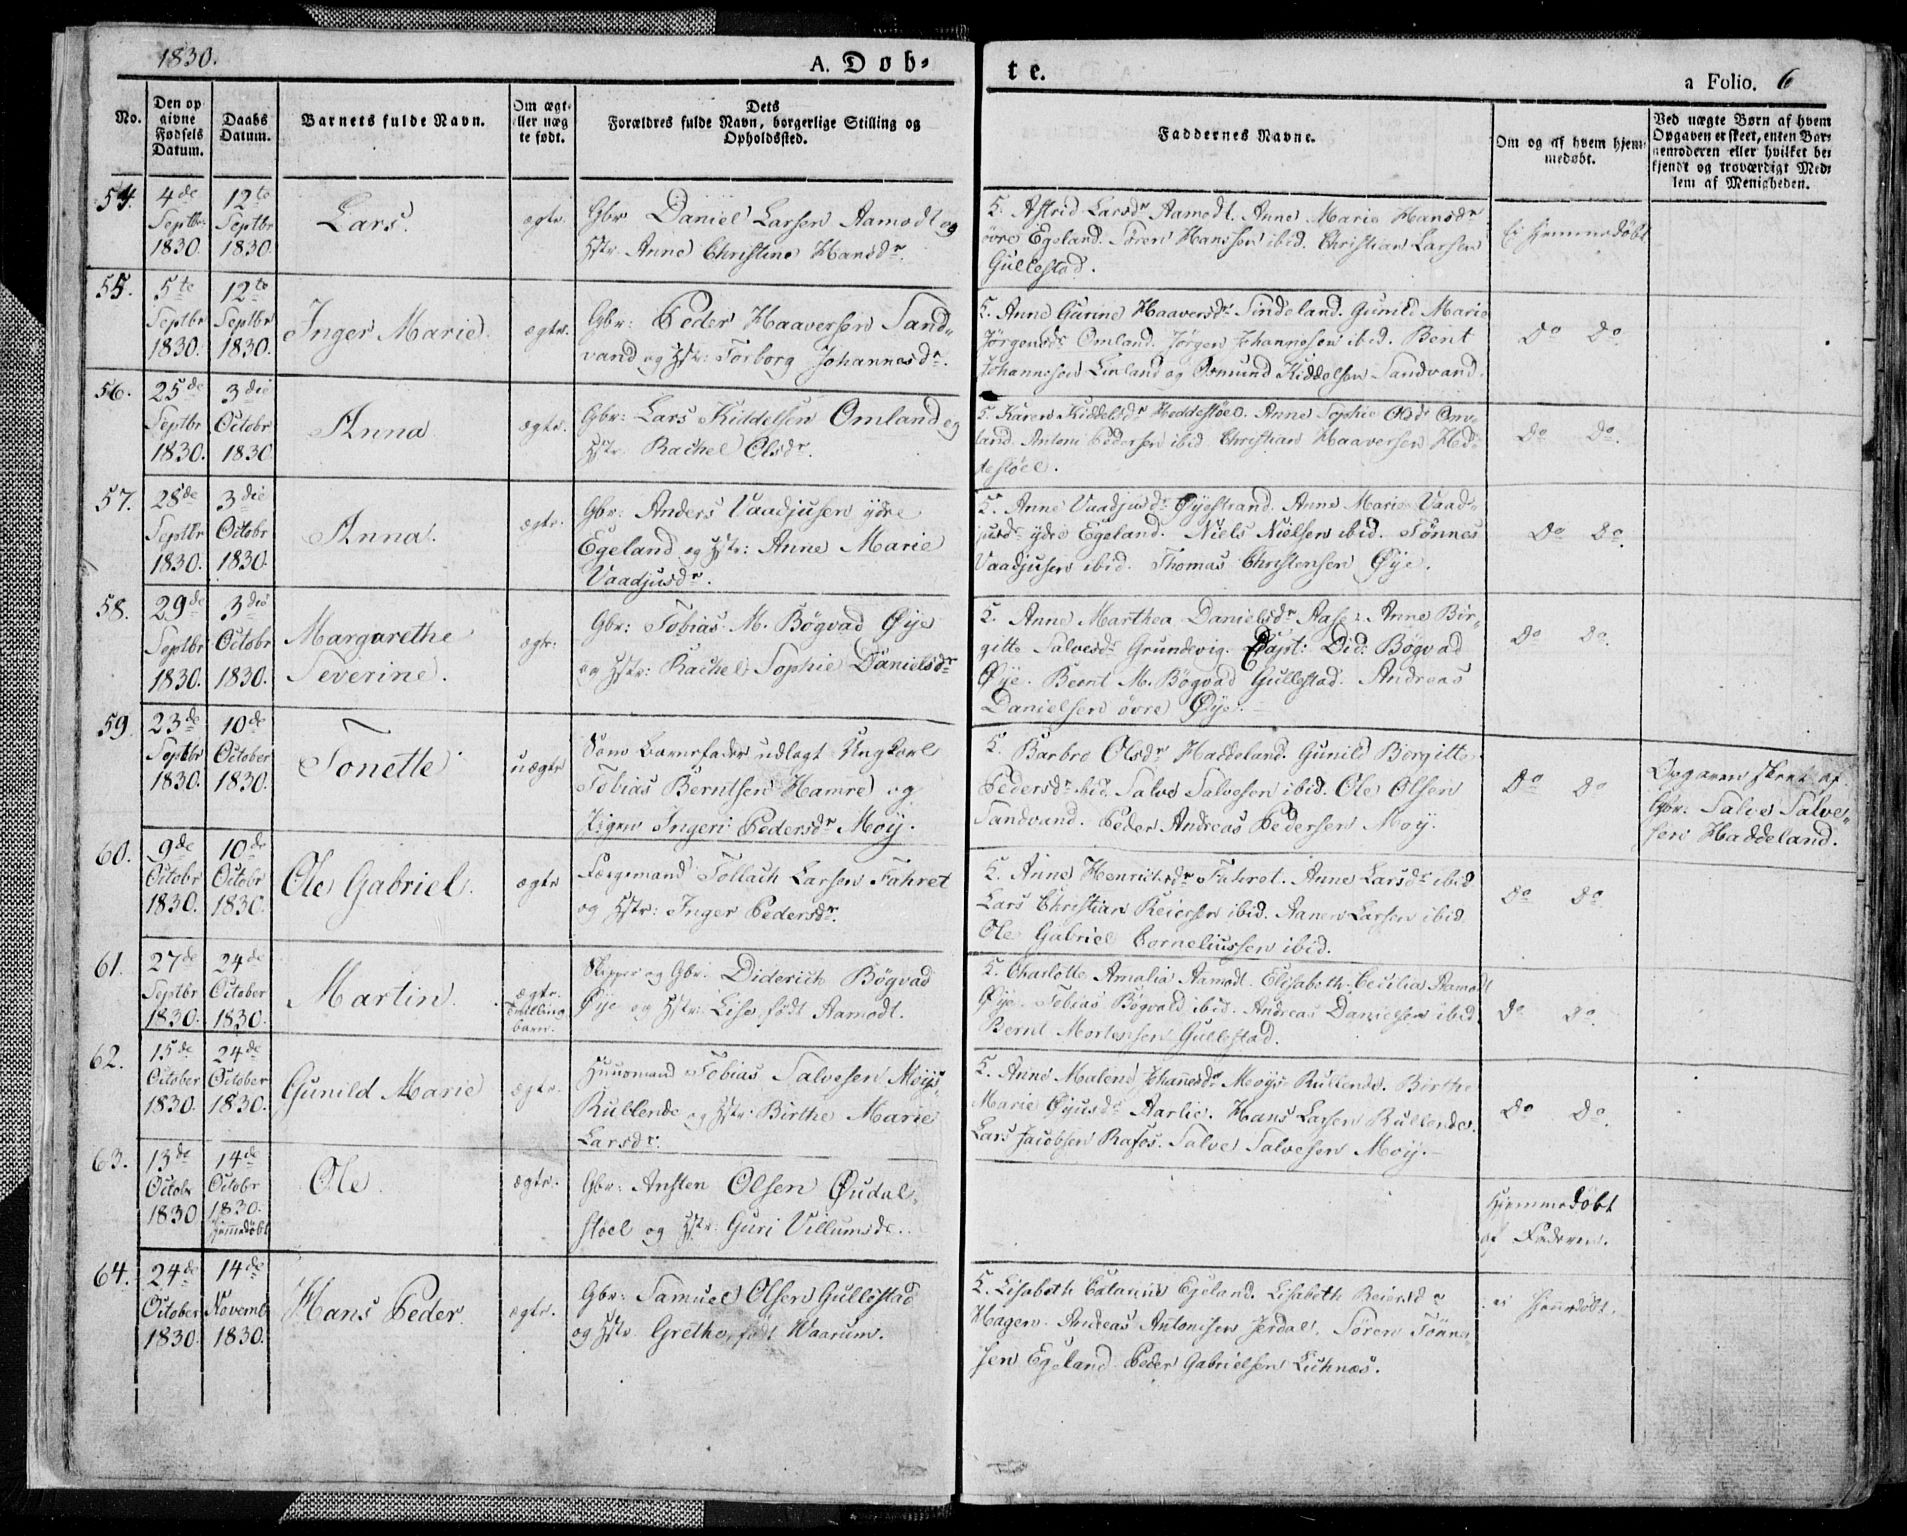 1830.
A. Døb-
te.
a Folio. 6
No.
Den op
givne
Fødsels
Datum.
Daabs
Datum.
Barnets fulde Navn.
Om ægt-
eller uæg
te født.
Dets
Forældres fulde Navn, borgerlige Stilling og
Opholdssted.
Faddernes Navne.
Om og af hvem hjem-
medøbt.
Ved uægte Børn af hvem
Opgaven er skeet, enten Bar-
nemoderen eller hvilket be-
kjendt og troværdigt Med-
lem af Menigheden.
54.
4de
Septbr
1830
12te
Septbr
1830.
Lars.
ægte.
Gbr Daniel Larsen Aamodt og
Hstr. Anne Christine Hansdr.
K. Astrid Larsdr Aamodt. Anne Marie Hansdr
øvre Egeland. Søren Hanssen ibid. Christian Larsen
Gullestad.
Ei hjemmedøbt
55.
5te
Septbr
1830.
12te
Septbr
1830.
Inger Marie.
ægte.
Gbr: Peder Haaversen Sand-
vand og Hstr: Torborg Johannesdr.
K. Anne Gurine Haaversdr Sindeland. Gunild Marie
Jørgensdr Omland. Jørgen Johannesen ibid. Berit
Johannesen Linland og Osmund Kiddelsen Sandvand.
Do Do
56.
25de
Septbr
1830.
3die
Octobr
1830
Anna
ægte.
Gbr: Lars Kiddelsen Omland og
Hstr. Rachel Olsdr.
K. Karen Kiddelsdr Heddestøel. Anne Sophie Olsdr Om-
land. Antoni Pedersen ibid. Christian Haaversen Hed-
destøel.
Do Do.
57.
28de
Septbr
1830.
3die
Octobr
1830.
Anna.
ægte.
Gbr: Anders Vaadjusen ydre
Egeland og Hstr: Anne Marie
Vaadjusdr.
K. Anne Vaadjusdr Øyestrand. Anne Marie Vaad-
jusdr ydre Egeland. Niels Nielsen ibid. Tønnes
Vaadjusen ibid. Thomas Christensen Øye.
Do Do.
58.
29de
Septbr
1830.
3die
Octobr
1830.
Margarethe
Severine.
ægte.
Gbr: Tobias M. Bøgvad Øye
og Hstr: Rachel Sophie Danielsdr
K. Anne Marthea Danielsdr Aase. Anne Bir-
gitte Salvesdr Grundevig. Capt: Did: Bøgvad
Øye. Bernt M. Bøgvad Gullestad. Andreas
Danielsen øvre Øye.
Do Do.
59.
23de
Septbr
1830.
10de
October
1830.
Tonette
uægte
Som Barnefader udlagt Ungkarl
Tobias Berntsen Hamre og
Pigen Ingeri Pedersdr Moy.
K. Barbro Olsdr Haddeland. Gunild Bergitte
Pedersdr ibid. Salve Salvesen ibid. Ole Olsen
Sandvand. Peder Andreas Pedersen Moy.
Do Do
Opgaven skeet af
Gbr: Salve Salve-
sen Haddeland.
60.
9de
Octobr
1830.
10de
Octobr
1830.
Ole Gabriel.
ægte
Færgemand Tollach Larsen Fahret
og Hstr: Inger Pedersdr.
K. Anne Henrichsdr Fahret. Anne Larsdr ibid
Lars Christian Reiersen ibid. Aanen Larsen ibid.
Ole Gabriel Corneliussen ibid.
Do Do.
61.
27de
Septbr
1830.
24de
October
1830.
Martin.
ægte.
Tvilling
barn.
Skipper og Gbr. Diderich Bøgvad
Øye og Hstr: Lise født Aamodt.
K. Charlotte Amalia Aamodt. Elisabeth Cecilia Aamodt
Øye. Tobias Bøgvald ibid. Andreas Danielsen ibid.
Bernt Mortensen Gullestad.
Do Do.
62.
15de
October
1830.
24de
October
1830.
Gunild Marie
ægte.
Huusmand Tobias Salvesen Moys
Rullende og Hstr: Birthe Marie
Larsdr.
K. Anne Malene Johannesdr Moys Rullende. Birthe
Marie Øyusdr Aarlie. Hans Larsen Rullende.
Lars Jacobsen Rafos. Salve Salvesen Moy.
Do Do.
63.
13de
Octobr
1830
14de
Octobr
1830.
hjemmedøbt
Ole
ægte.
Gbr: Ansten Olsen Øudal-
støel og Hstr: Guri Villumsdr.
Hjemmedøbt
af Faderen.
64.
24de
October
1830.
14de
Novembr
1830.
Hans Peder.
ægte.
Gbr. Samuel Olsen Gullestad
og Hstr Grethe, født Waarum.
K. Lisabeth Catarine Egeland. Lisabeth Reiersdr
Hagen. Andreas Antonisen Jerdal. Søren Tønne-
sen Egeland. Peder Gabrielsen Lichnæs.
ei hjemedøbt.